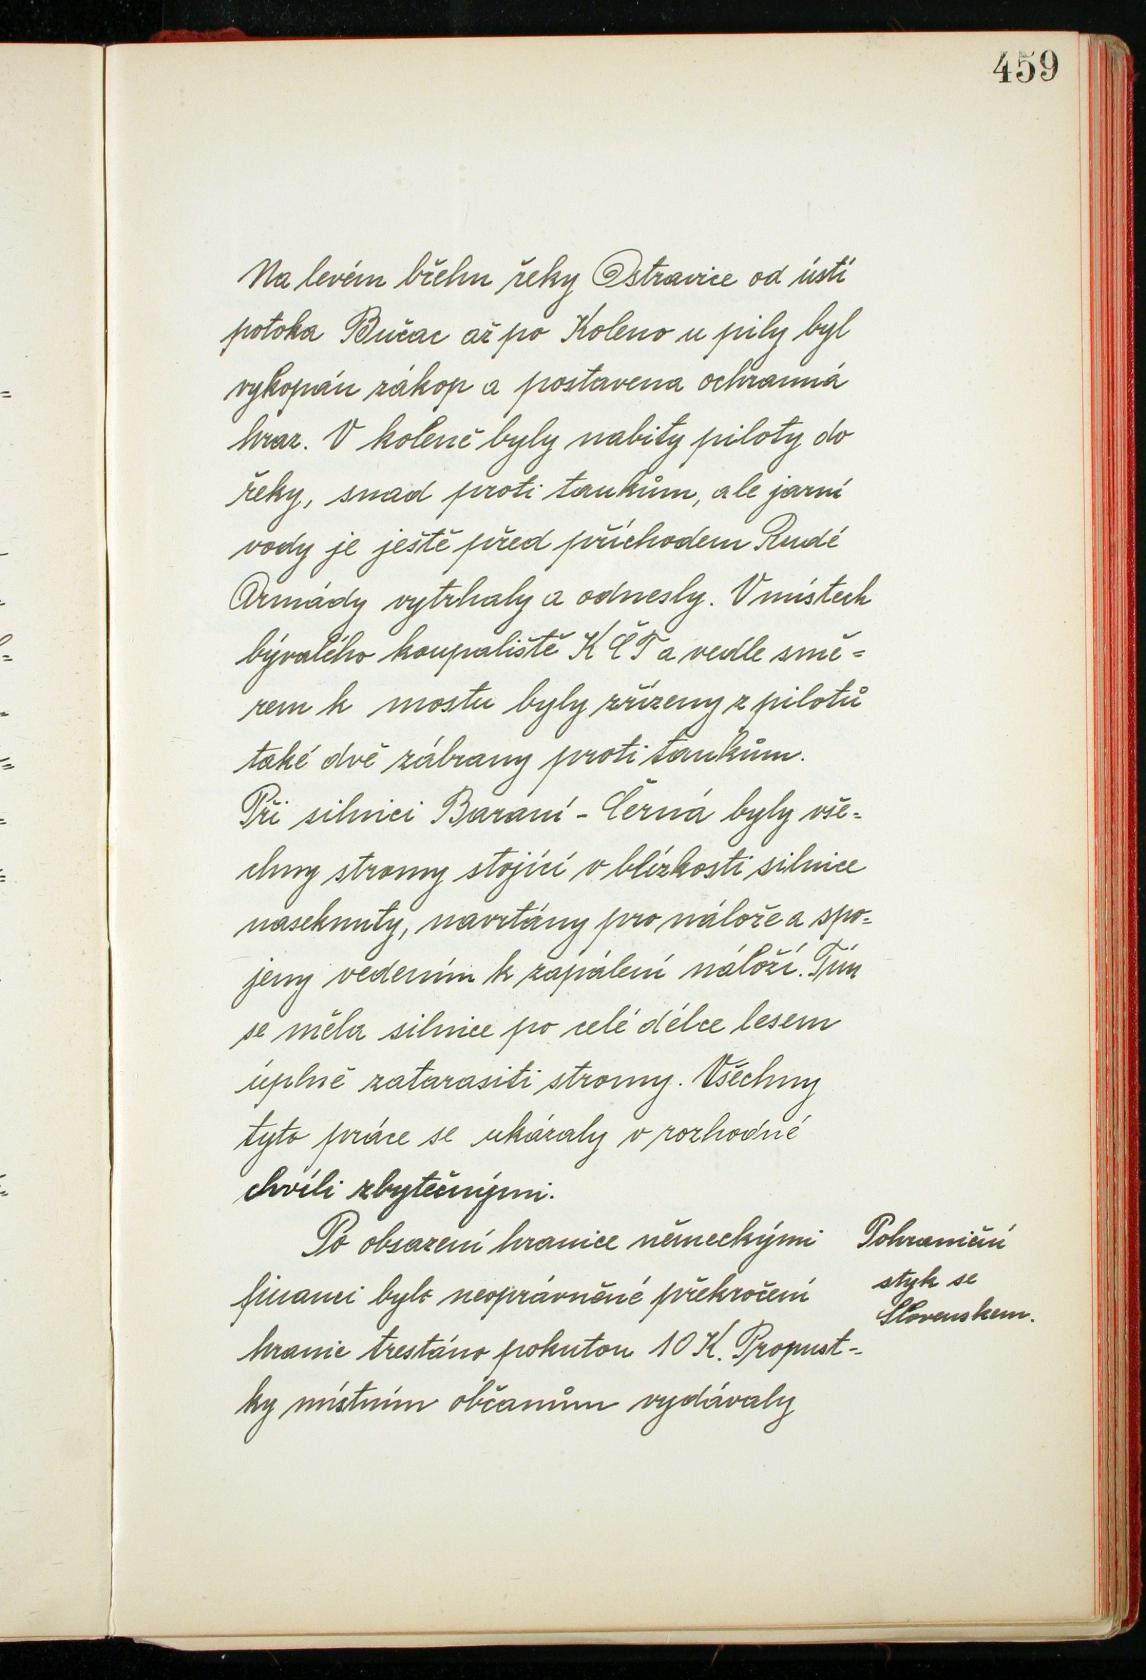 459
Na levém břehu řeky Ostravice od ústí
potoka Bučac až po Koleno u pily byl
vykopán zákop a postavena ochranná
hraz. V koleně byly nabity piloty do
řeky, snad proti tankům, ale jarní
vody je ještě před příchodem Rudé
Armády vytrhaly a odnesly. V místech
bývalého koupaliště KČT a vedle smě=
rem k mostu byly zřízeny z pilotů
také dvě zábrany proti tankům.
Při silnici Baraní - Černá byly vše=
chny stromy stojící v blízkosti silnice
naseknuty, navrtány pro nálože a spo=
jeny vedením k zapálení náloží. Tím
se měla silnice po celé délce lesem
úplně zatarasiti stromy. Všechny
tyto práce se ukázaly v rozhodné
chvíli zbytečnými.
Po obsazení hranice německými
financi bylo neoprávněné překročení
hranic trestáno pokutou 10 K. Propust=
ky místním občanům vydávaly
Pohraniční
styk se
Slovenskem.